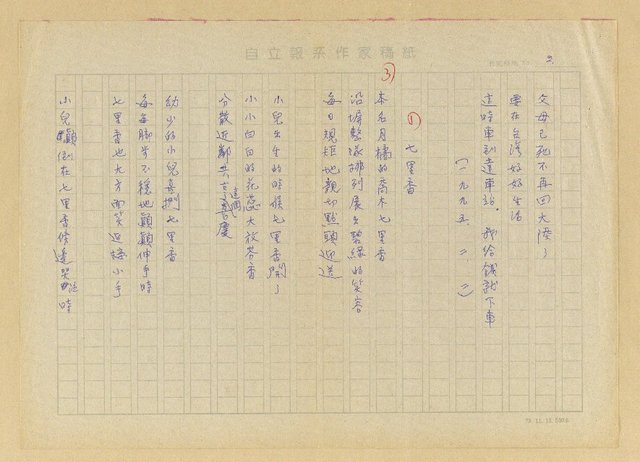 自立報系作家稿紙
2.
父母已死不再回大陸了
要在台灣好好生活
這時車到達車站,我給錢就下車
(一九九五、二、二)
③
① 七里香
本名月橘的喬木七里香
沿牆整隊排列展出碧綠的笑容
每日規矩地親切點頭迎送
小兒出生的時候七里香開了
小小白白的花蕊大放芬香
分散近鄰共享這個喜慶
幼少的小兒喜捫七里香
每每腳步不穩地顛顛伸手時
七里香也大方面笑迎接小手
小兒顛倒在七里香傍邊哭啼時